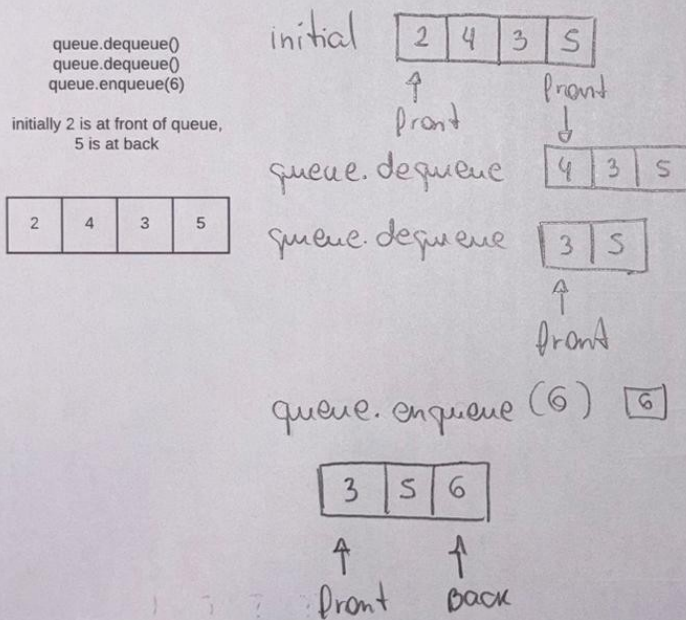 queue.dequeue()
queue.dequeue()
queue.enqueue(6)
initially 2 is at front of queue,
5 is at back
2 4 3 5
initial 2 4 3 5
front
front
queue.dequeue 4 3 5
queue.dequeue 3 5
front
queue.enqueue (6) 6
3 5 6
front Back